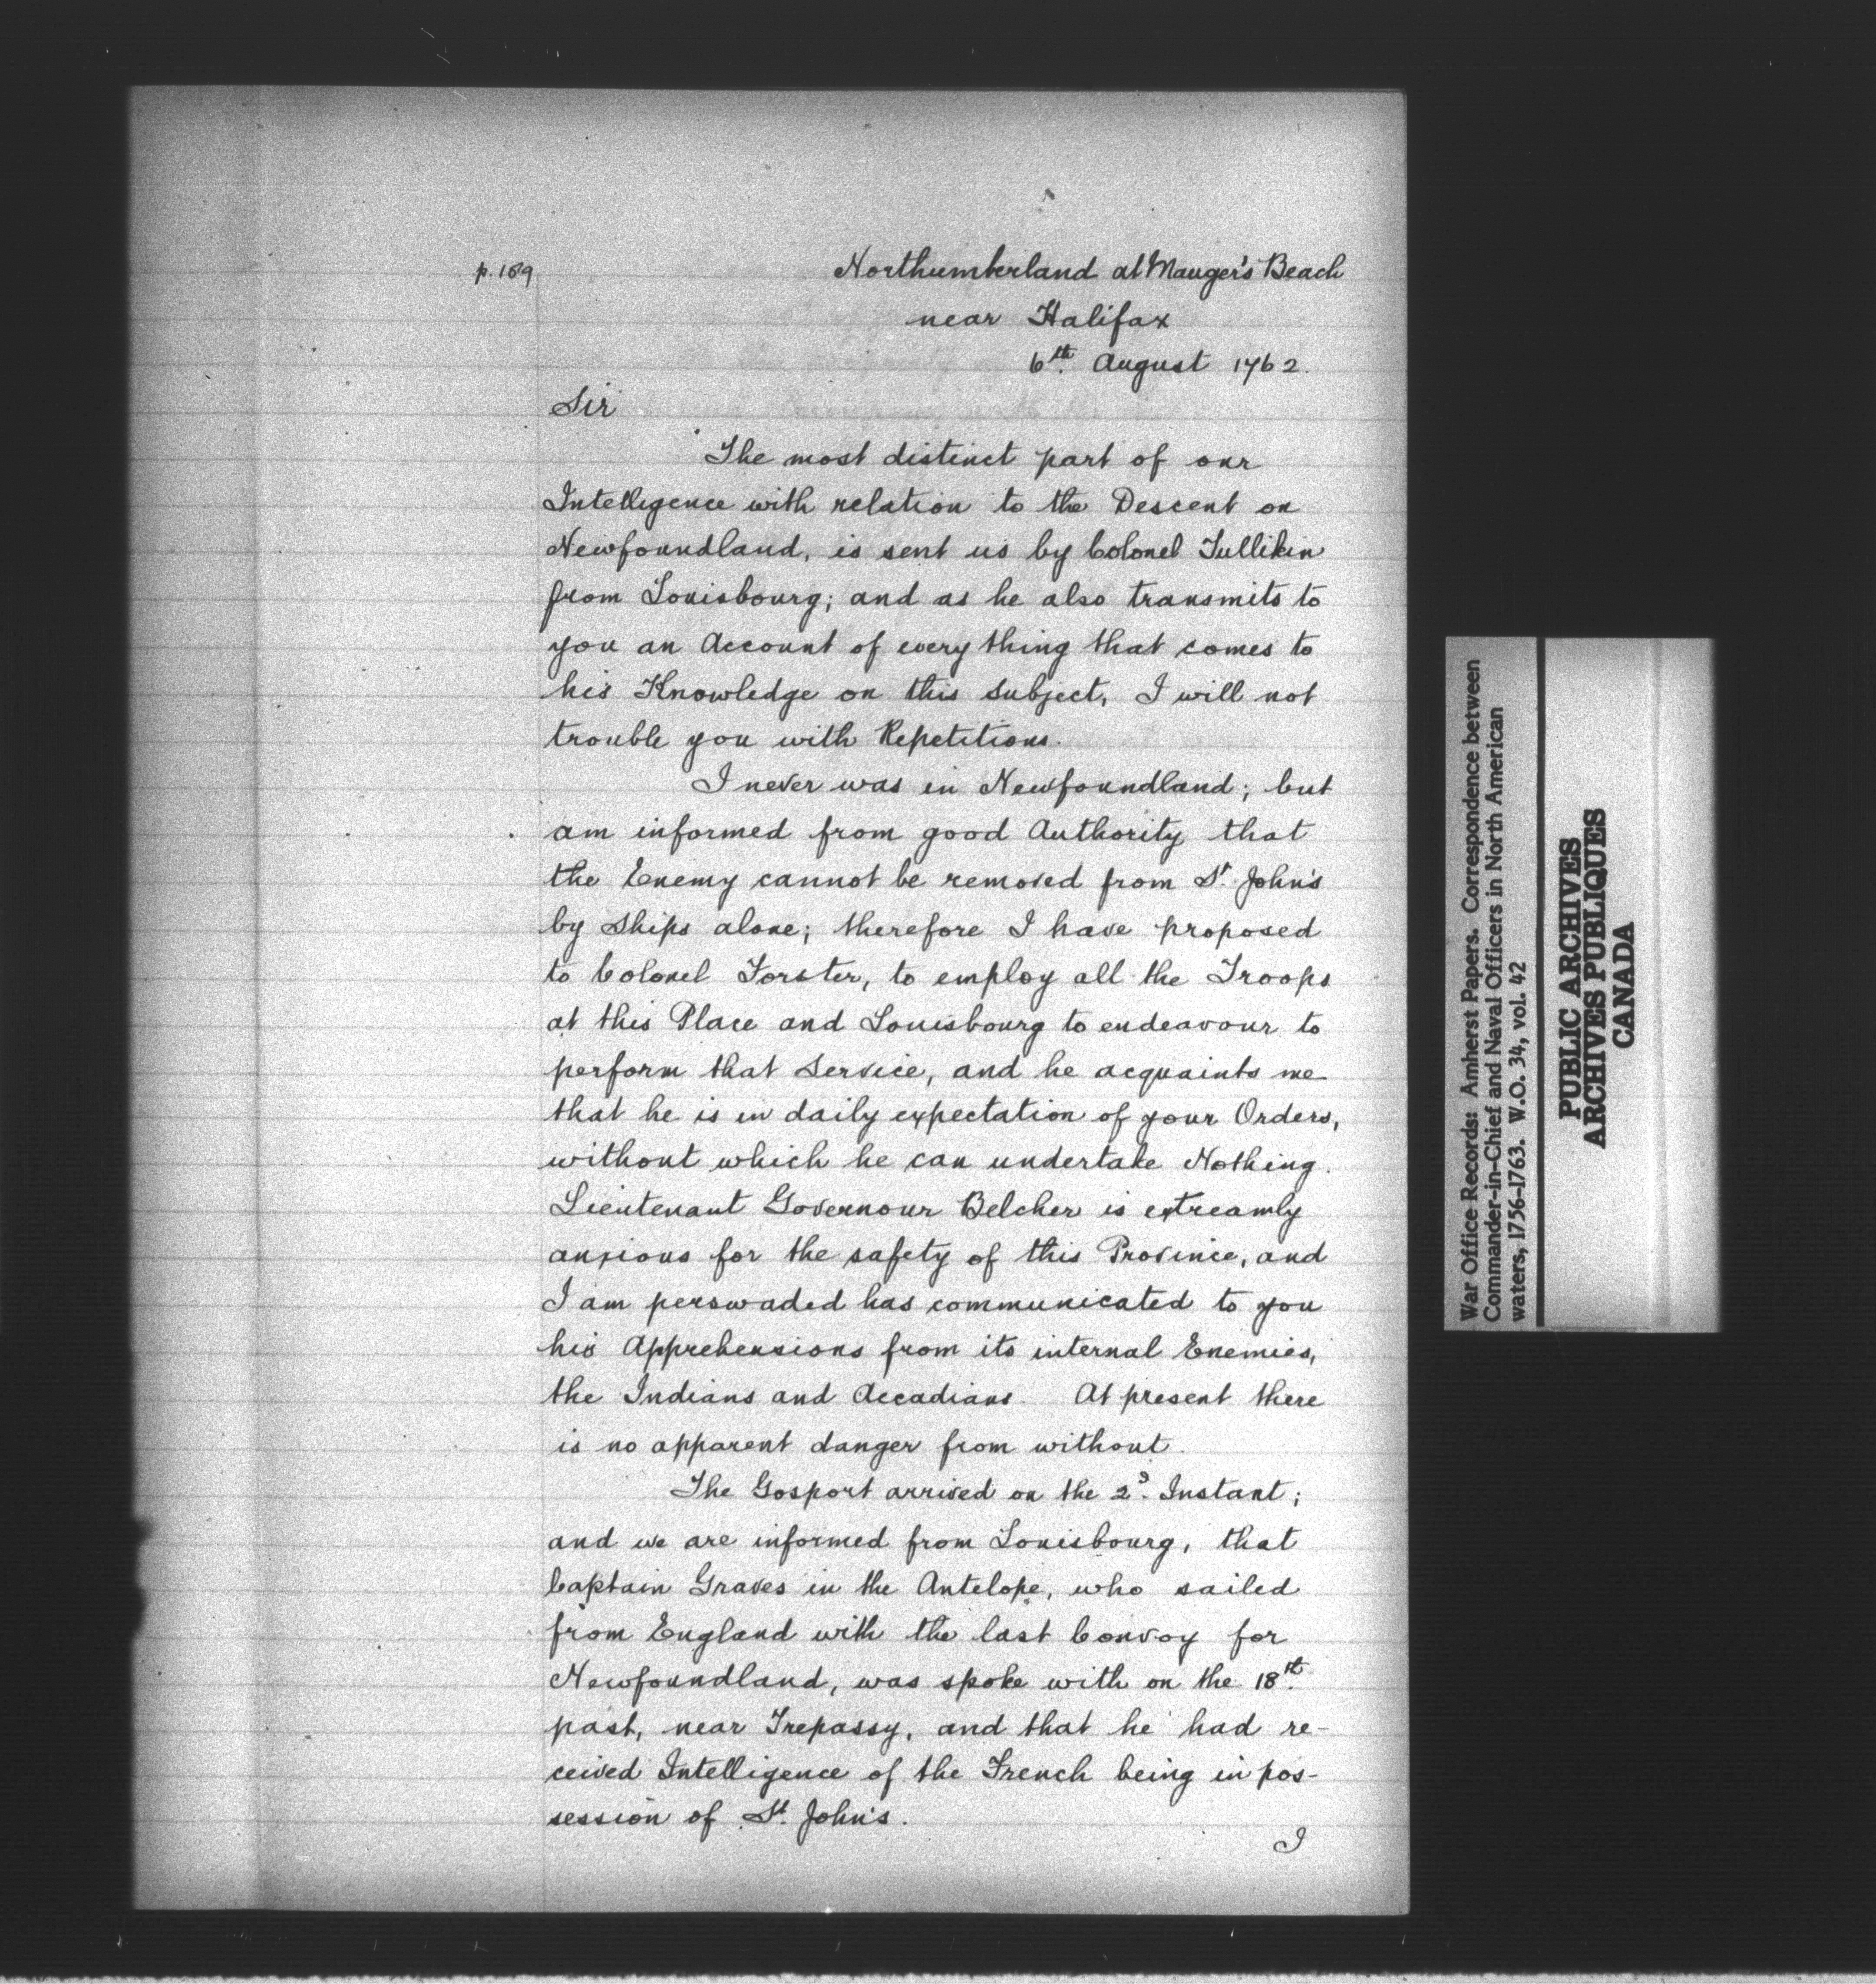 p. 169
Northumberland at Mauger's Beach
near Halifax
6th. August 1762.
Sir
The most distinct part of our
Intelligence with relation to the Descent on
Newfoundland, is sent us by Colonel Tullikin
from Louisbourg; and as he also transmits to
you an Account of every thing that comes to
his Knowledge on this subject, I will not
trouble you with Repetitions.
I never was in Newfoundland; but
am informed from good Authority that
the Enemy cannot be removed from St. John's
by Ships alone; therefore I have proposed
to Colonel Forster, to employ all the Troops
at this Place and Louisbourg to endeavour to
perform that Service, and he acquaints me
that he is in daily expectation of your Orders,
without which he can undertake Nothing.
Lieutenant Governour Belcher is extreamly
anxious for the safety of this Province, and
I am perswaded has communicated to you
his Apprehensions from its internal Enemies,
the Indians and Accadians. At present there
is no apparent danger from without.
The Gosport arrived on the 2d. Instant;
and we are informed from Louisbourg, that
Captain Graves in the Antelope, who sailed
from England with the last Convoy for
Newfoundland, was spoke with on the 18th.
past, near Trepassy, and that he had re-
ceived Intelligence of the French being in pos-
session of St. John's.
I
War Office Records: Amherst Papers. Correspondence between
Commander-in-Chief and Naval Officers in North American
waters, 1756-1763. W.O. 34, vol. 42
PUBLIC ARCHIVES
ARCHIVES PUBLIQUES
CANADA